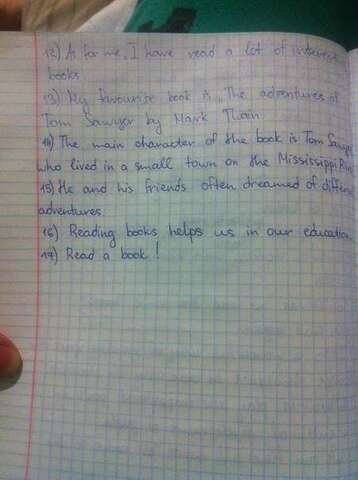 12) As for me, I have read a lot of interest
books
13) My favourite book is „The adventures of
Tom Sawyer by Mark Twain
14) The main character of the book is Tom Sawye
who lived in a small town on the Mississippi Riv
15) He and his friends often dreamed of differe
adventures
16) Reading books helps us in our education
17) Read a book!